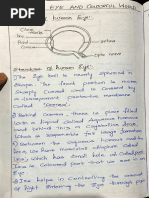 EYE AND COLOURFUL WORLD
of human Eye:-
Iris
Pupil
Cornea
Optic nerve
Structure of human Eye:-
The Eye ball is nearly spherical in
shape. The front portion is more
Sharply curved and is covered by
a transparent protective membrane
Called 'Cornea'.
Behind Cornea, there is place filled
with a liquid called Aqueous humour
and behind this a Crystalline lens
which is responsible for image formation
Between the aqueous humour and the
lens, we have muscular diaphragm called
'Iris' which has small hole at called pupil
Iris is coloured part that we see in
an Eye.
The Iris helps in Controlling the amount
of light entering the Eye through pupil